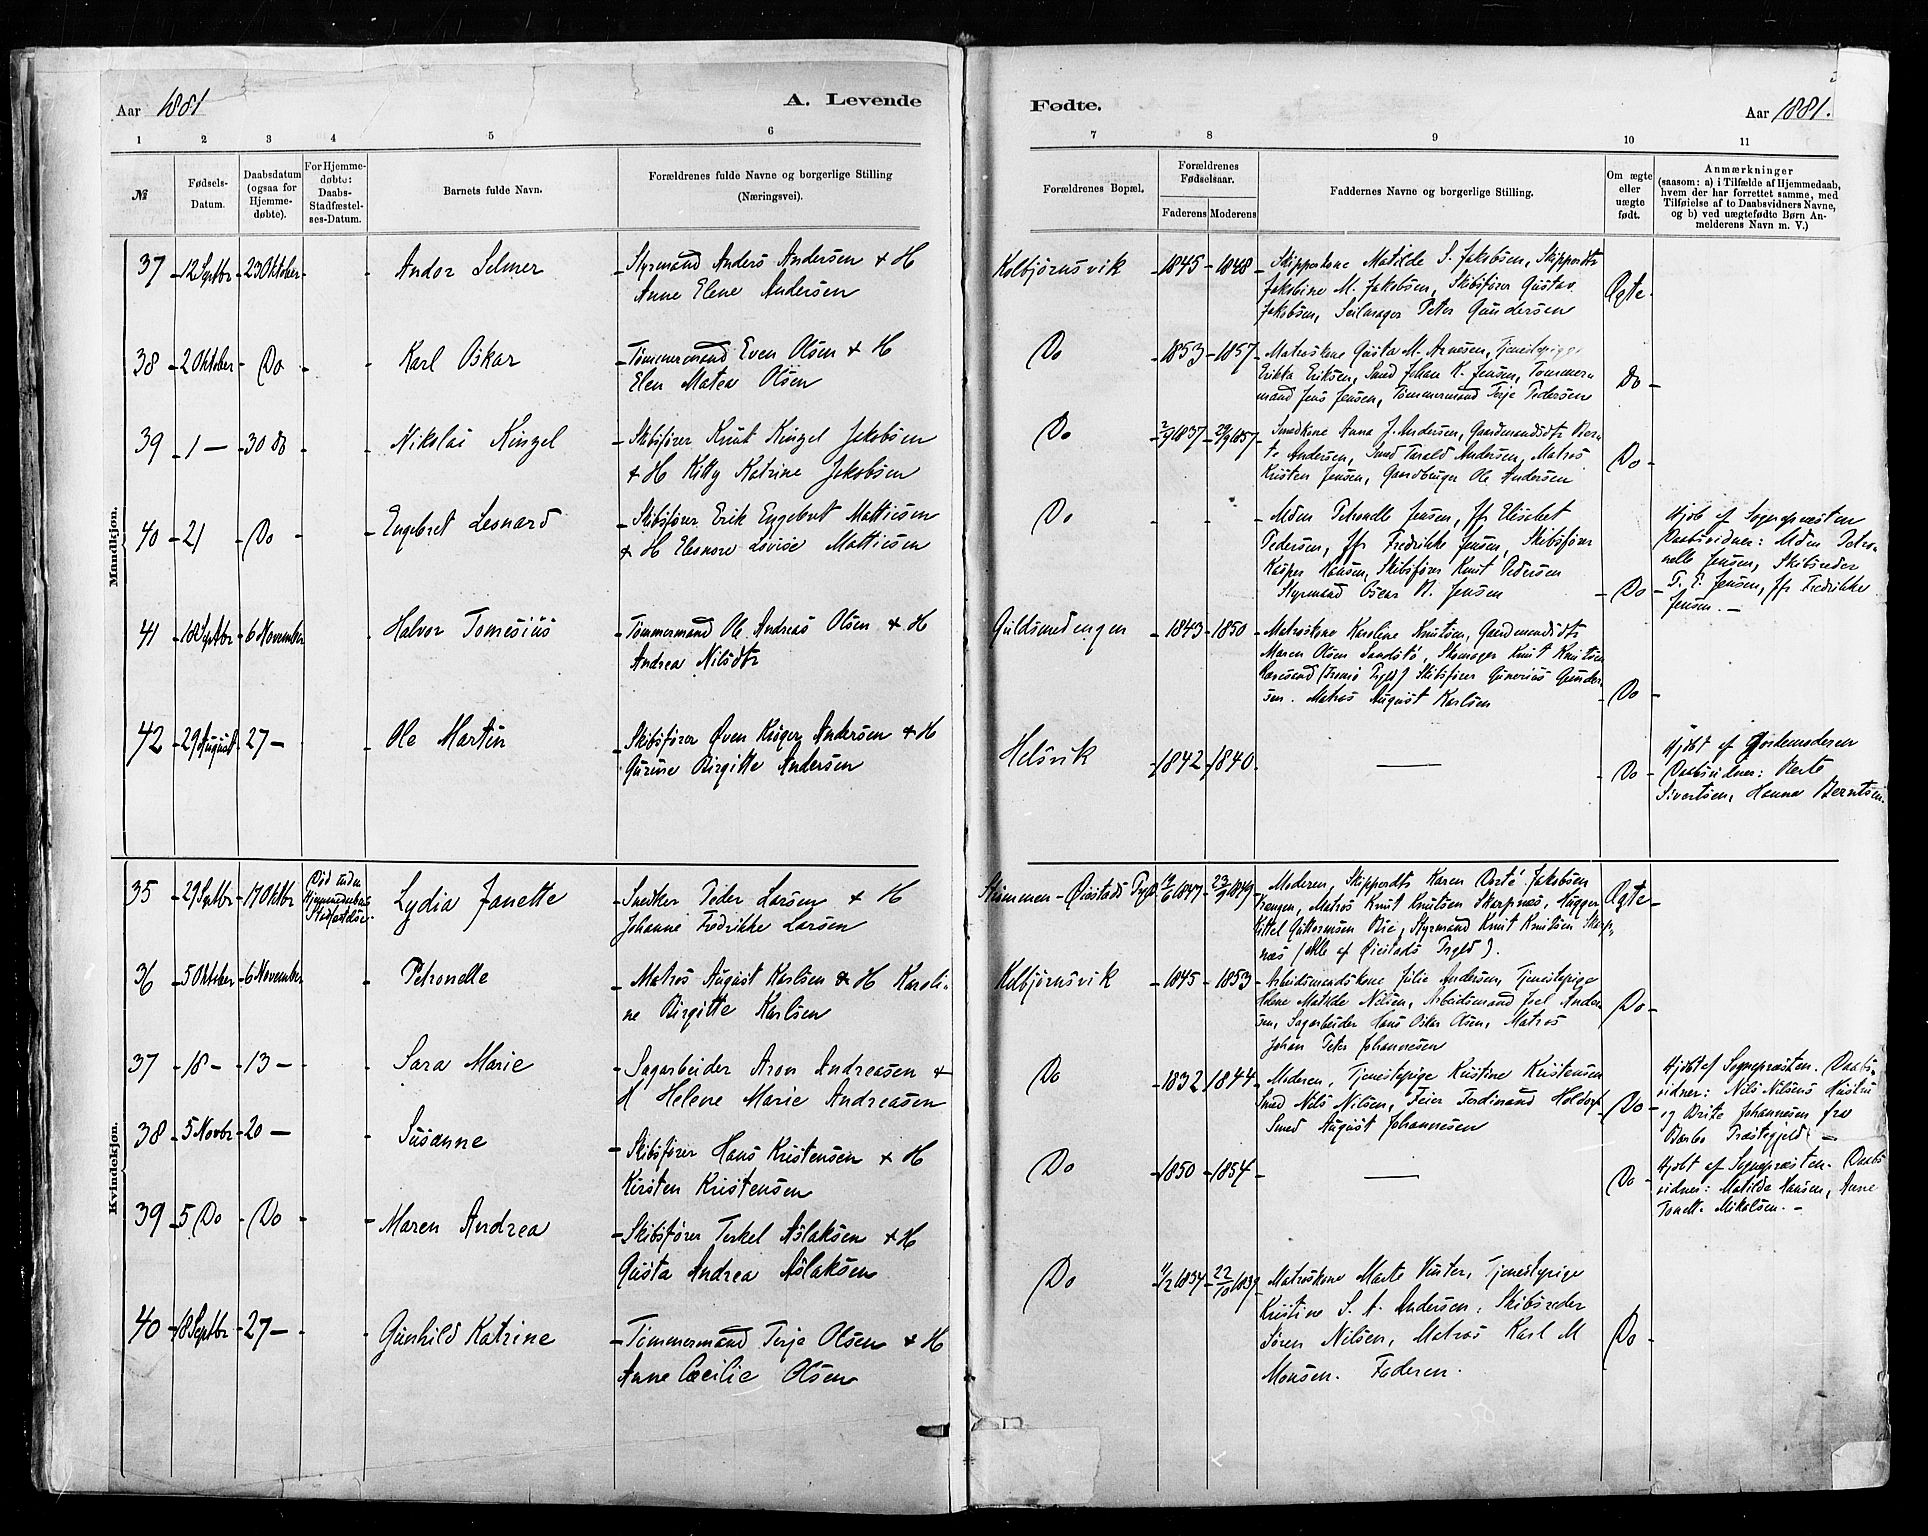 Aar 1881
A. Levende
Fødte.
Aar 1881.
1 2 3 4 5 6 7 8 9 10 11
№
Fødsels-
Datum.
Daabsdatum
(ogsaa for
Hjemme-
døbte).
For Hjemme-
døbte:
Daabs-
Stadfæstel-
ses-Datum.
Barnets fulde Navn.
Forældrenes fulde Navne og borgerlige Stilling
(Næringsvei).
Forældrenes Bopæl.
Forældrenes
Fødselsaar.
Faderens Moderens
Faddernes Navne og borgerlige Stilling.
Om ægte
eller
uægte
født.
Anmærkninger
(saasom: a) i Tilfælde af Hjemmedaab,
hvem der har forrettet samme, med
Tilføielse af to Daabsvidners Navne,
og b) ved uægtefødte Børn An-
melderens Navn m. V.)
Mandkjøn.
37 12 Septbr 23 Oktober Andor Selmer
Styrmand Anders Andersen + H
Anne Elene Andersen
Kolbjørnsvik 1845 1848
Skipperkone Matilde S. Jakobsen, Skipperdtr
Jakobine M. Jakobsen, Skibsfører Gustav
Jakobsen, Seilmager Peter Gundersen
Ægte.
38 2 Oktober Do Karl Oskar
Tømmermand Even Olsen + H
Elen Matea Olsen
Do 1853 1857
Matroskone Gusta M. Arnesen, Tjenestepige
Erikka Eriksen, Smed Johan K. Jensen, Tømmer
mand Jens Jensen, Tømmermand Terje Pedersen
Do
39 1 — 30 Do Nikolai Kingel
Skibsfører Knut Kingel Jakobsen
+ H Kitty Katrine Jakobsen
Do 2/9 1837 29/9 1857
Smedkone Anna J. Andersen, Gaardmandsdtr Ber-
te Andersen, Smed Tarald Andersen, Matros
Kristen Jensen, Gaardbruger Ole Andersen
Do
40 21 Do Engebret Leonard
Skibsfører Erik Engebret Mattiesen
+ H Elenore Lovise Mattiesen
Do
Md​en Petronelle Jensen, Jfr Elisabet
Pedersen, Jfr Fredrikke Jensen, Skibsfører
Kasper Hansen, Skibsfører Knut Pedersen
Styrmand Oscar N. Jensen
Do
Hjdb af Sognepræsten
Daabsvidner: Mden Petro-
nelle Jensen, Skibsreder
T. E. Jensen, Jfr Fredrikke
Jensen. —
41 18 Septbr 6 November Halvor Tomesius
Tømmermand Ole Andreas Olsen + H
Andrea Nilsdtr
Guldsmedengen 1843 1850
Matroskone Karoline Knutsen, Gaardmandsdtr
Maren Olsen Sandstø, Skomager Knut Knutsen
(Tromø Prgld) Skibsfører Gunerius Gunder-
sen. Matros August Karlsen
Do
42 29 August 27 — Ole Martin
Skibsfører Øven Kriger Andersen + H
Gurine Birgitte Andersen
Helsvik 1842 1840 —
Do
Hjdbt af Jordemoderen
Daabsvidner: Berte
Sivertsen, Hanna Berntsen.
Kvindekjøn.
35 29 Septbr 17 Oktbr
Død inden
Hjemmedaabens
Stadfæstelse.
Lydia Janette
Snedker Peder Larsen + H
Johanne Fredrikke Larsen
Strømmen - Øiestads Prgld 14/6 1847 23/9 1849
Moderen, Skipperdtr Karen Dorte Jakobsen
Matros Knut Knutsen Skarpnæs, Hugger
Kittel Guttormsen Bie, Styrmand Knut Knutsen Skarp-
næs (Alle af Øiestads Prgld).
Ægte
36 5 Oktober 6 November Petronelle
Matros August Karlsen & H Karoli-
ne Birgitte Karlsen
Kolbjørnsvik 1845 1853
Arbeidsmandskone Julie Andersen, Tjenestepige
Helene Matilde Nilsen, Arbeidsmand Joel Ander-
sen, Sagarbeider Hans Oskar Olsen, Matros
Johan Peter Johannesen
Do
37 18 — 13 — Sara Marie
Sagarbeider Aron Andreasen +
H Helene Marie Andreasen
Do 1832 1844
Moderen, Tjenestepige Kristine Kristensen
Smed Nils Nilsen, Feier Ferdinand
Smed August Johannesen
Do
Hjdbt af Sognepræsten. Daabs-
vidner: Nils Nilsens Hustru
og Brite Johannesen fra
Barbo Præstegjeld —
38 5 Novbr 20 — Susanne
Skibsfører Hans Kristensen + H
Kirsten Kristensen
Do 1850 1854 —
Do
Hjdbt af Sognepræsten. Daabs
vidner: Matilda Hansen, Anne
Tonette Mikalsen. —
39 5 Do Do Maren Andrea
Skibsfører Terkel Aslaksen + H
Gusta Andrea Aslaksen
Do 11/2 1834 22/10 1839
Matroskone Marte Vinter, Tjenestepige
Kristine S. A. Andersen, Skibsreder
Søren Nilsen, Matros Karl M
Monsen. Faderen.
Do
40 18 Septbr 27 — Gunhild Katrine
Tømmermand Terje Olsen + H
Anne Cæcilie Olsen